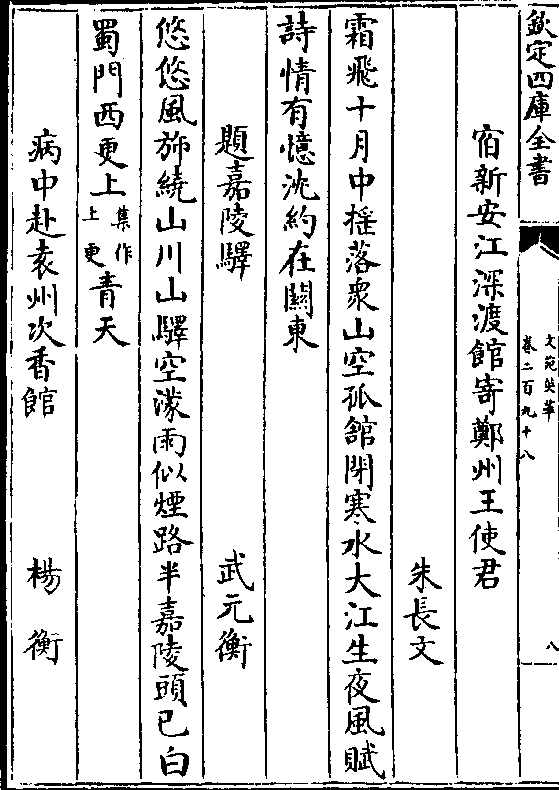 欽定四庫全書
文苑英華
卷二百九十八
八
宿新安江深渡館寄鄭州王使君
朱長文
霜飛十月中揺落衆山空孤舘閉寒水大江生夜風賦
詩情有憶沈約在關東
題嘉陵驛
武元衡
悠悠風斾繞山川山驛空濛雨似煙路半嘉陵頭已白
蜀門西更上集作上更青天
病中赴袁州次香館
楊衡